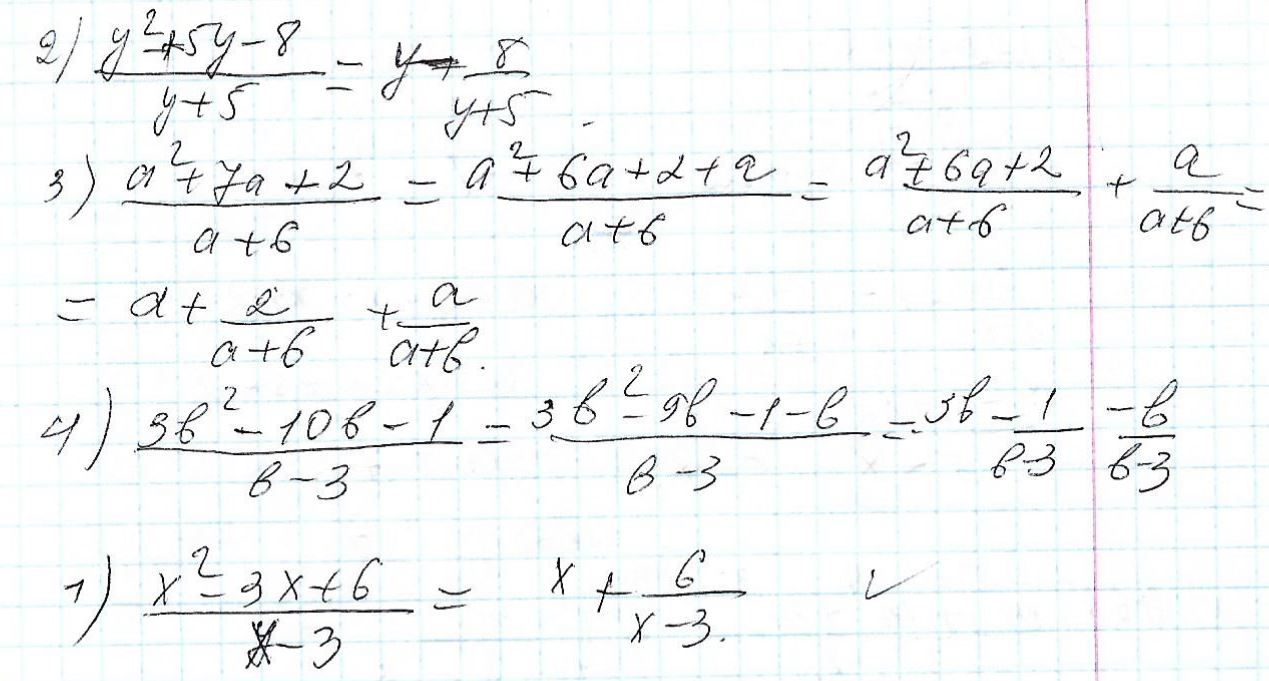 2) (y²+5y-8)/(y+5) = y - 8/(y+5) .
3) (a²+7a+2)/(a+6) = (a²+6a+2+a)/(a+6) = (a²+6a+2)/(a+6) + a/(a+6) =
= a + 2/(a+6) + a/(a+6).
4) (3в²-10в-1)/(в-3) = (3в²-9в-1-в)/(в-3) = 3в - 1/(в-3) -в/(в-3)
1) (x²-3x+6)/(x-3) = x + 6/(x-3). ✓